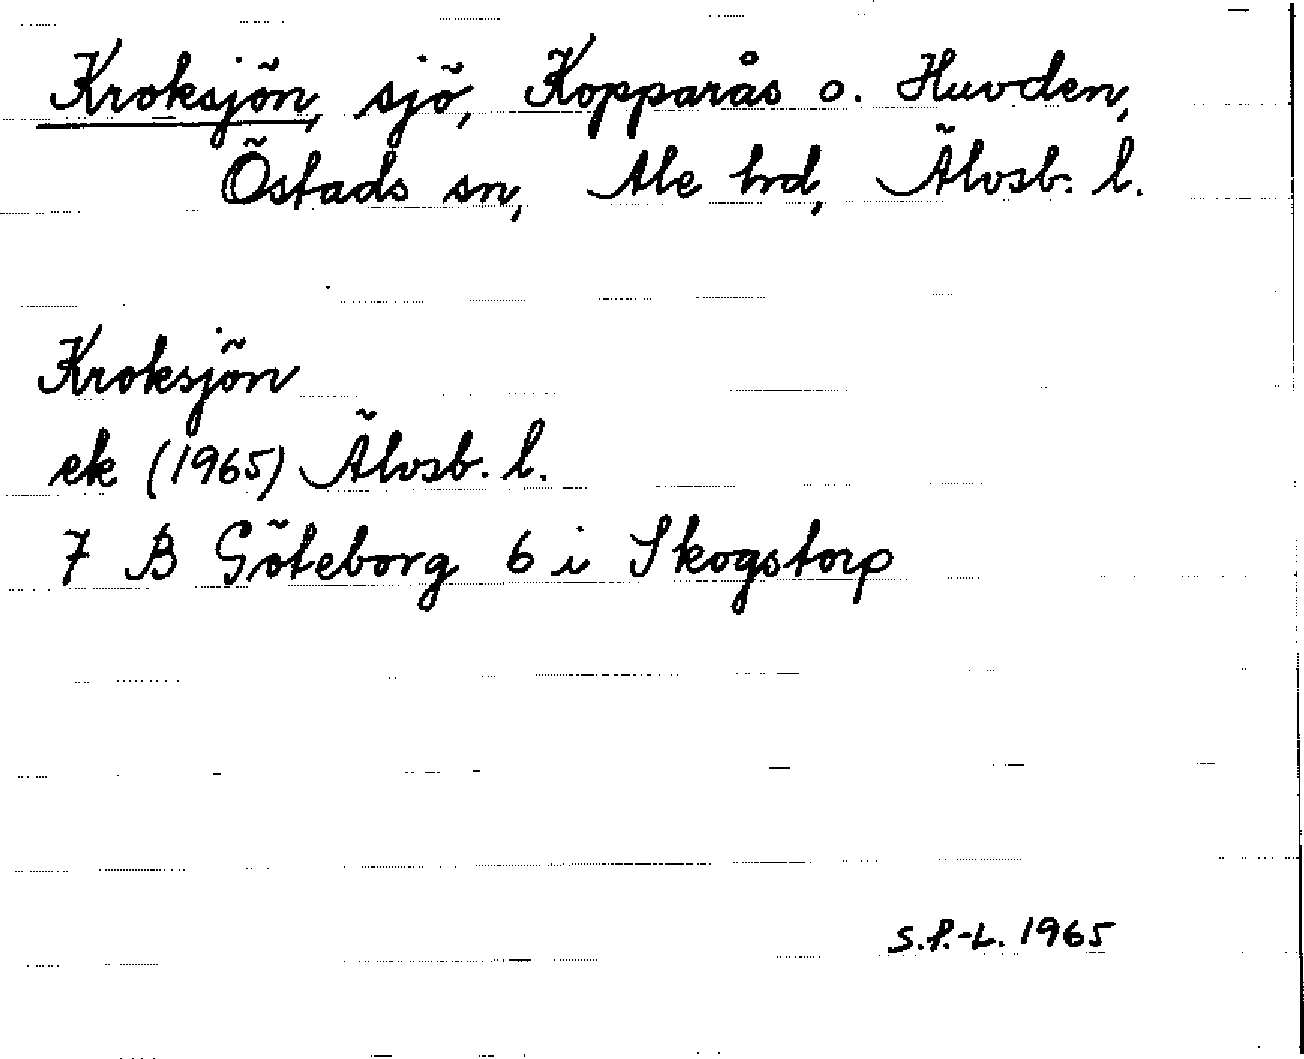 Kroksjön, sjö, Kopparås o. Huvden,
Östads sn, Ale hrd, Älvsb. l.
Kroksjön
ek (1965) Älvsb. l.
7 B Göteborg 6 i Skogstorp
S.P.-L. 1965